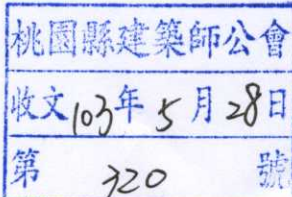 桃園縣建築師公會
收文103年5月28日
第320號